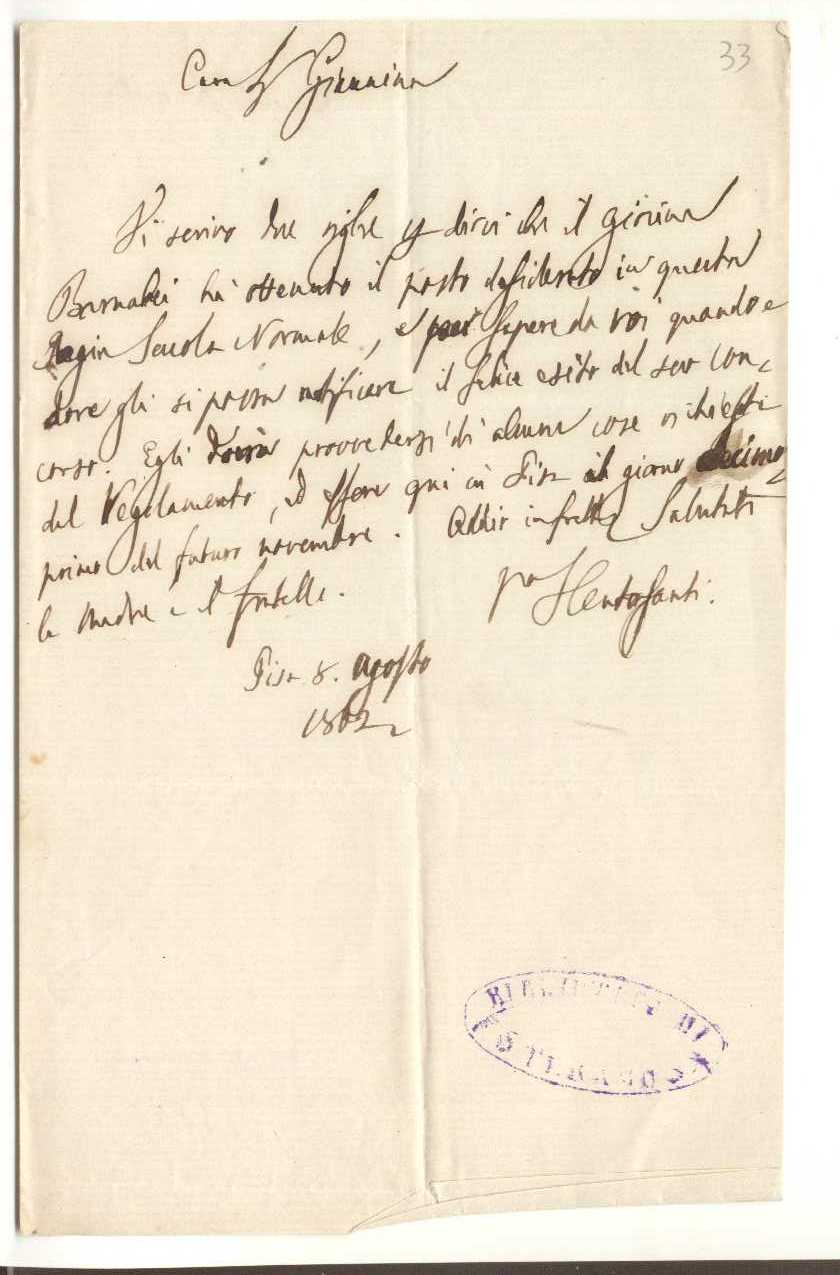 33
Cara Giannina
Vi scrivo due righe p dirvi che il giovine
Barnabei ha ottenuto il posto desiderato in questa
Regia Scuola Normale, e per sapere da voi quando e
dove gli si possa notificare il felice esito del suo con-
corso. Egli dovrà provvedersi di alcune cose richieste
dal Regolamento, ed essere qui in Pisa il giorno decimo
primo del futuro novembre. Addio in fretta, Salutate
la madre e il fratello.
Pisa 8. agosto
1862
BIBLIOTECA DI